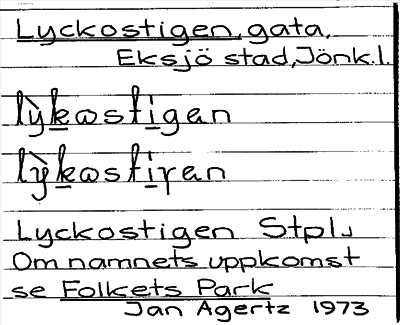 Lyckostigen, gata,
Eksjö stad, Jönk.l.
lỳkωstigan
lỳkωstiɣan
Lyckostigen Stpl
Om namnets uppkomst
se Folkets Park
Jan Agertz 1973